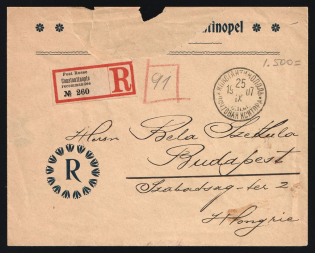 tinopel
1.500=
Post Russe
Constantinople
recommandée
№ 260
R
91
25
15 07
IX
Herrn Bela Szekula
R
Budapest
Szabadsag-ter 2
Hongrie